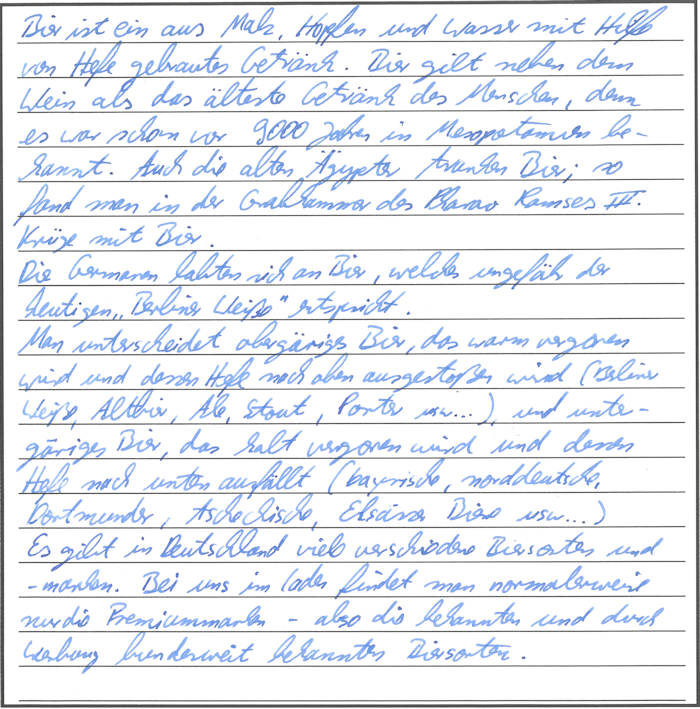 Bier ist ein aus Malz, Hopfen und Wasser mit Hilfe
von Hefe gebrautes Getränk. Bier gilt neben dem
Wein als das älteste Getränk des Menschen, denn
es war schon vor 9000 Jahren in Mesopotamien be-
kannt. Auch die alten Ägypter tranken Bier; so
fand man in der Grabkammer des Pharao Ramses III.
Krüge mit Bier.
Die Germanen labten sich an Bier, welches ungefähr der
heutigen „Berliner Weiße“ entspricht.
Man unterscheidet obergäriges Bier, das warm vergoren
wird und dessen Hefe nach oben ausgestoßen wird (Berliner
Weiße, Altbier, Ale, Stout, Porter usw...), und unter-
gäriges Bier, das kalt vergoren wird und dessen
Hefe nach unten ausfällt (bayrische, norddeutsche,
Dortmunder, Tschechische, Elsässer Biere usw...)
Es gibt in Deutschland viele verschiedene Biersorten und
-marken. Bei uns im Laden findet man normalerweise
nur die Premiummarken - also die bekannten und durch
Werbung bundesweit bekannten Biersorten.